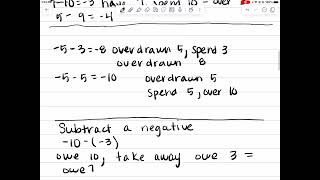 7-10=-3 have 7, spend 10 - over
5 - 9 = -4
-5-3=-8 overdrawn 5, spend 3
overdrawn 8
-5-5=-10 overdrawn 5
spend 5, over 10
Subtract a negative
-10-(-3)
owe 10, take away owe 3 =
owe 7